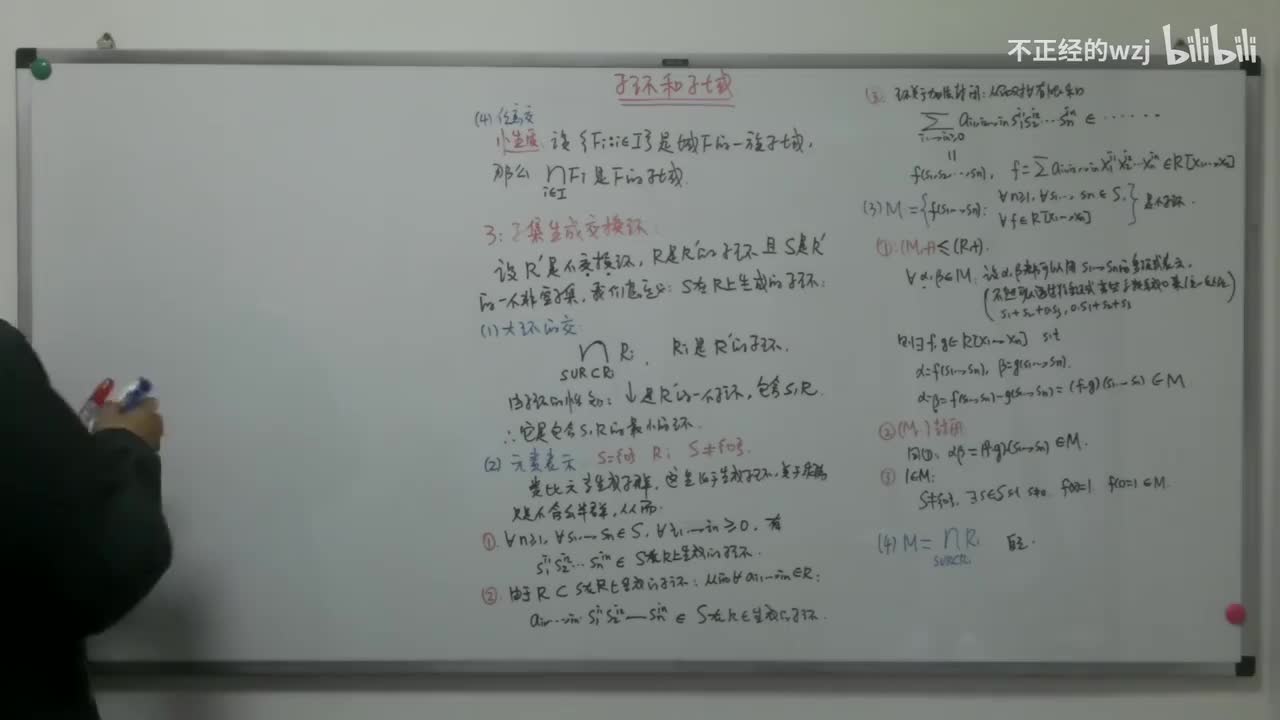 不正经的wzj bilibili
子环和子域
(4) 任意交
设 {Fi: i∈I} 是域F的一族子域,
那么 ∩ Fi 是F的子域.
i∈I
3: 子集生成交换环
设 R′是个交换环, R是R′的子环 且 S是R′
的一个非空子集, 我们定义: S在R上生成的子环:
(1) 大环的交:
∩ Ri , Ri 是 R′的子环.
S∪R⊂Ri
由子环的性质: ↓是R′的一个子环, 包含S,R.
∴它是包含S,R的最小的环.
(2) 元素表示 S={0} R; S≠{0}.
类比元素生成子群,
只是不含幺半群, 从而:
①. ∀n≥1, ∀s1,…,sn∈S, ∀i1,…,in≥0, 有
s1^i1 s2^i2 … sn^in ∈ S在R上生成的子环.
②. 由于 R ⊂ S在R上生成的子环; 从而∀ai1…in∈R:
ai1…in s1^i1 s2^i2 … sn^in ∈ S在R上生成的子环.
③. 环关于加法封闭:
∑ ai1i2…in s1^i1 s2^i2 … sn^in ∈ ……
i1…in≥0
||
f(s1,s2…,sn), f=∑ ai1i2…in x1^i1 x2^i2 … xn^in ∈R[x1…xn]
(3) M = {f(s1…sn): ∀n≥1, ∀s1…, sn∈S, ∀f∈R[x1…xn]} 是个子环.
①: (M,+)≤(R,+).
∀α,β∈M, 设α,β都可以用 s1…sn的多项式表示,
s1+s2+0s3, 0·s1+s2+s3
则∃f,g∈R[x1…xn] s.t
α=f(s1…sn), β=g(s1…sn).
α-β=f(s1…sn)-g(s1…sn)=(f-g)(s1…sn) ∈M
②(M,·)封闭
同①, αβ=(f·g)(s1…sn)∈M.
③ 1∈M:
S≠{0}, ∃s∈S s.t s≠0, f(x)=1, f(s)=1∈M.
(4) M= ∩ Ri
S∪R⊂Ri